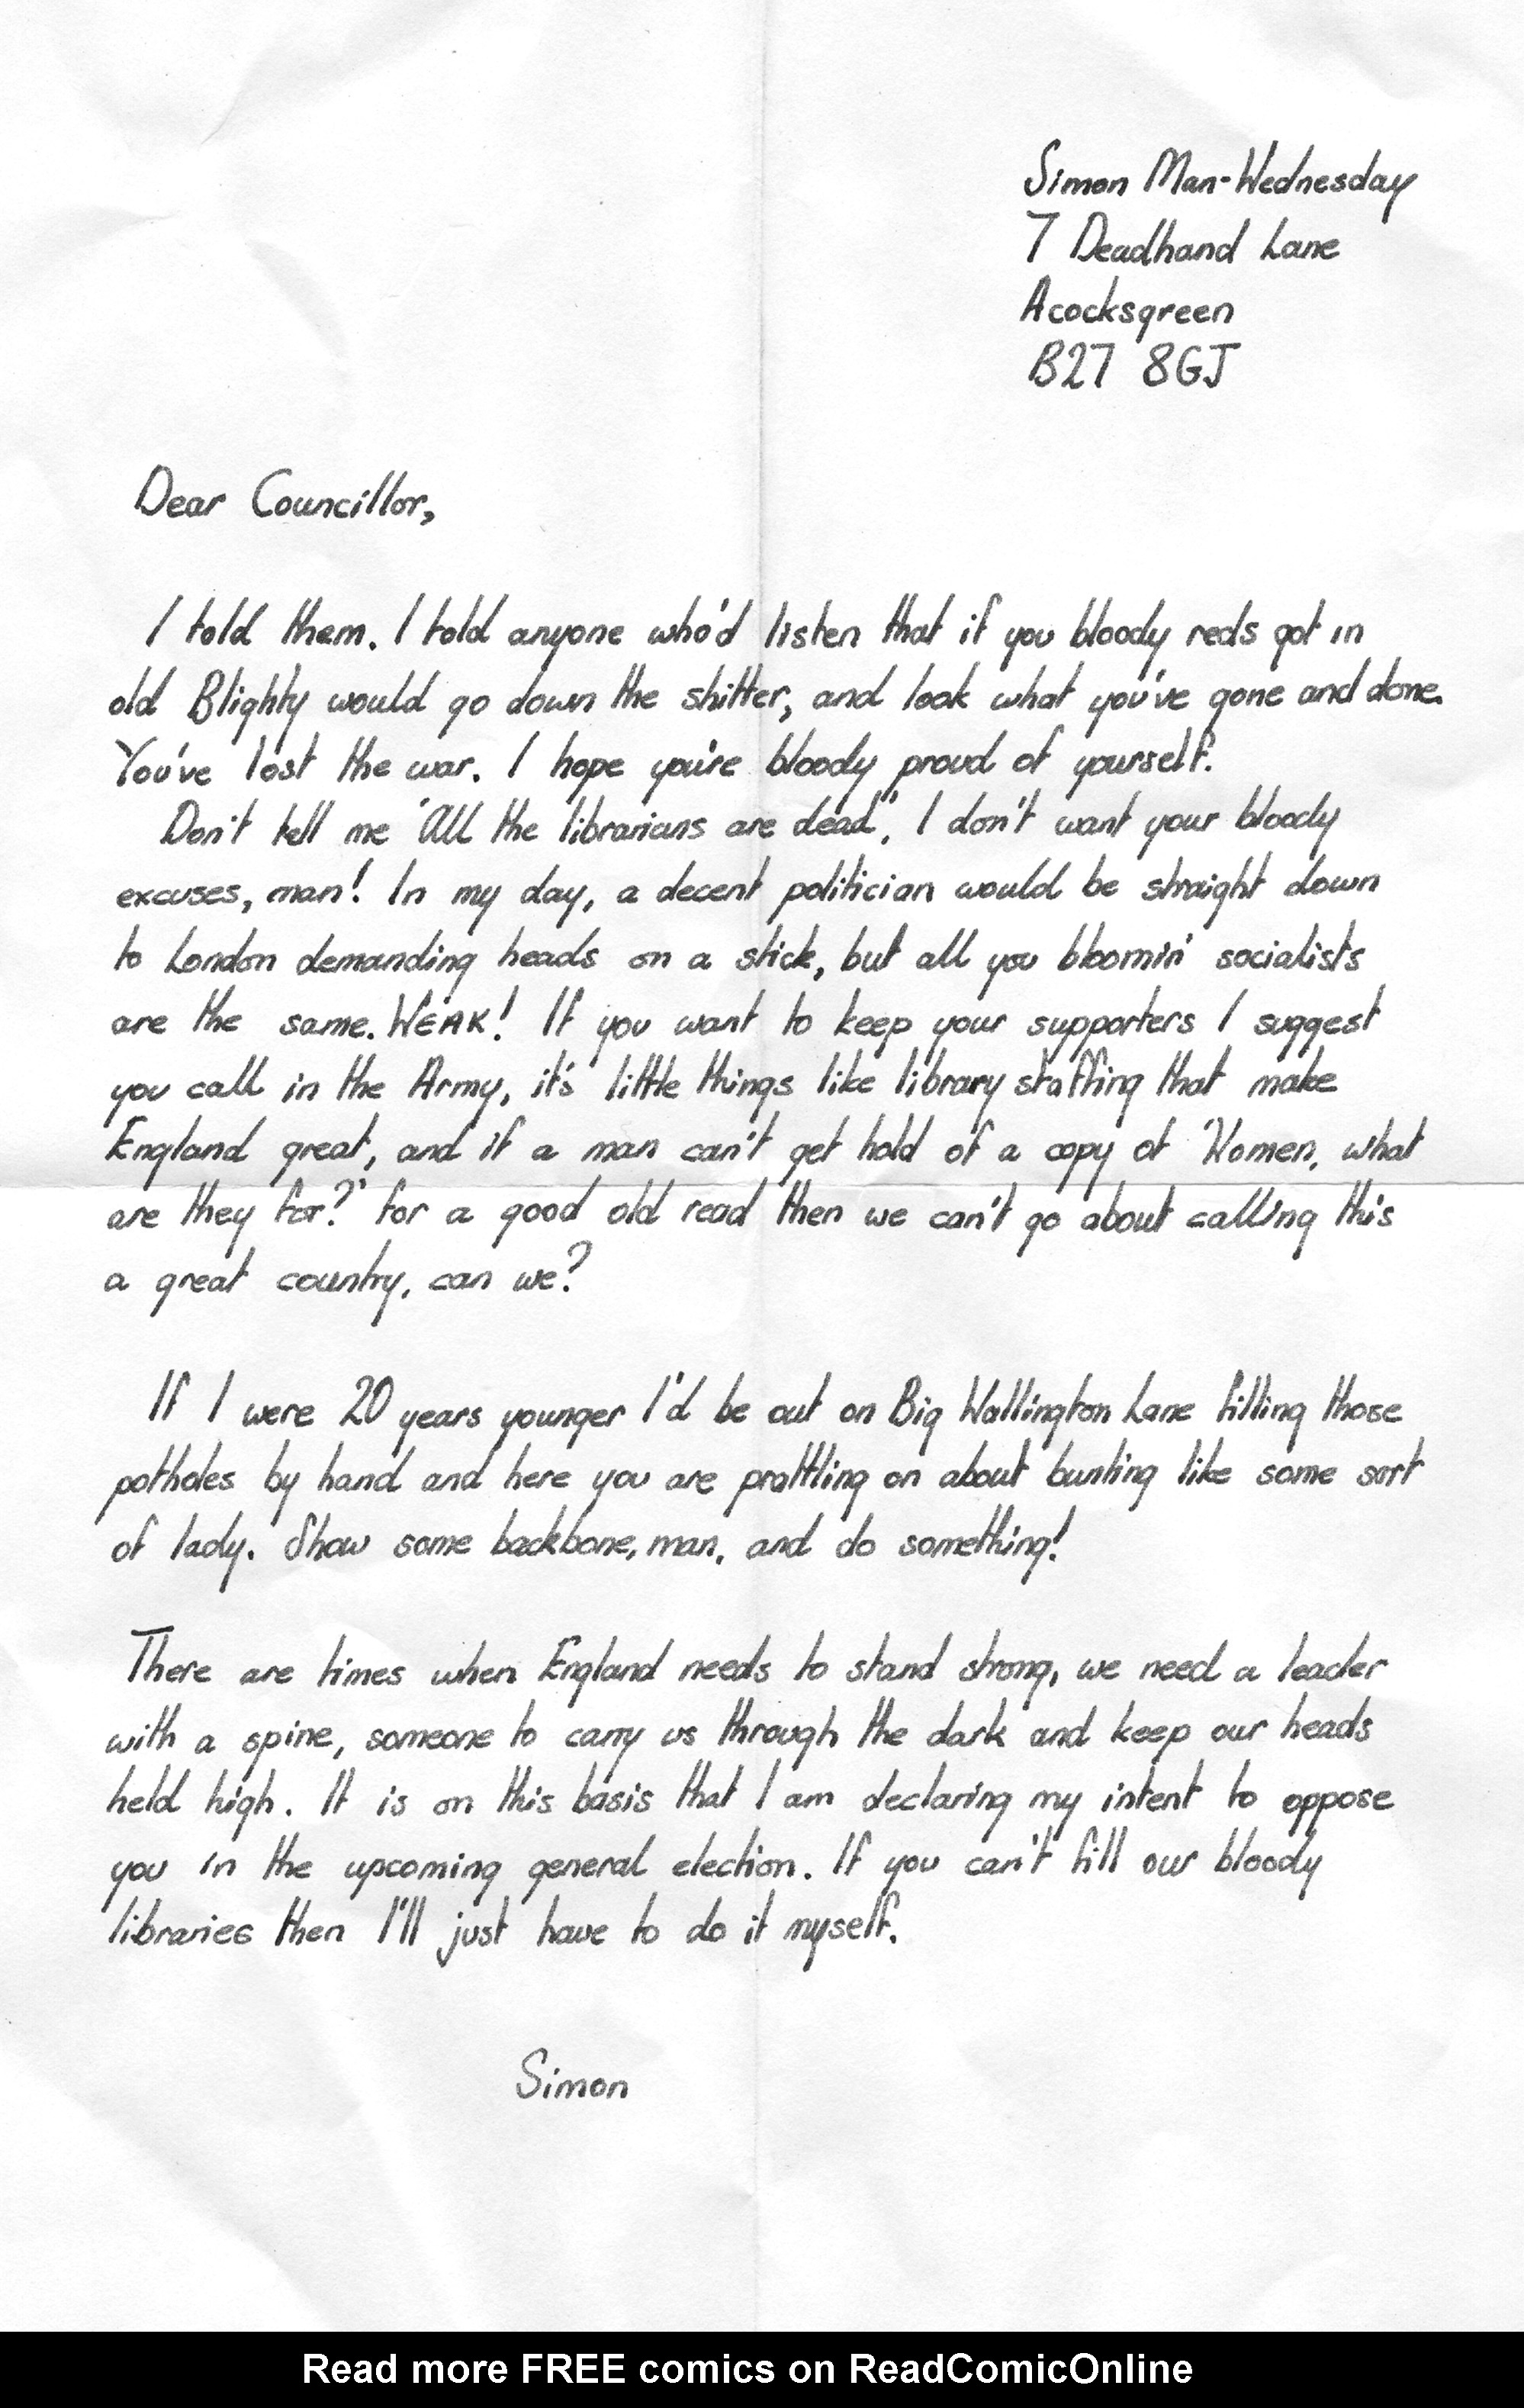 Simon Man-Wednesday
7 Deadhand Lane
Acocksgreen
B27 8GJ
Dear Councillor,
I told them. I told anyone who'd listen that if you bloody reds got in
old Blighty would go down the shitter, and look what you've gone and done.
You've lost the war. I hope you're bloody proud of yourself.
Don't tell me 'All the librarians are dead', I don't want your bloody
excuses, man! In my day, a decent politician would be straight down
to London demanding heads on a stick, but all you bloomin' socialists
are the same. WEAK! If you want to keep your supporters I suggest
you call in the Army, it's little things like library staffing that make
England great, and if a man can't get hold of a copy of 'Women, what
are they for?' for a good old read then we can't go about calling this
a great country, can we?
If I were 20 years younger I'd be out on Big Wallington Lane filling those
potholes by hand and here you are prattling on about bunting like some sort
of lady. Show some backbone, man, and do something!
There are times when England needs to stand strong, we need a leader
with a spine, someone to carry us through the dark and keep our heads
held high. It is on this basis that I am declaring my intent to oppose
you in the upcoming general election. If you can't fill our bloody
libraries then I'll just have to do it myself.
Simon
Read more FREE comics on ReadComicOnline